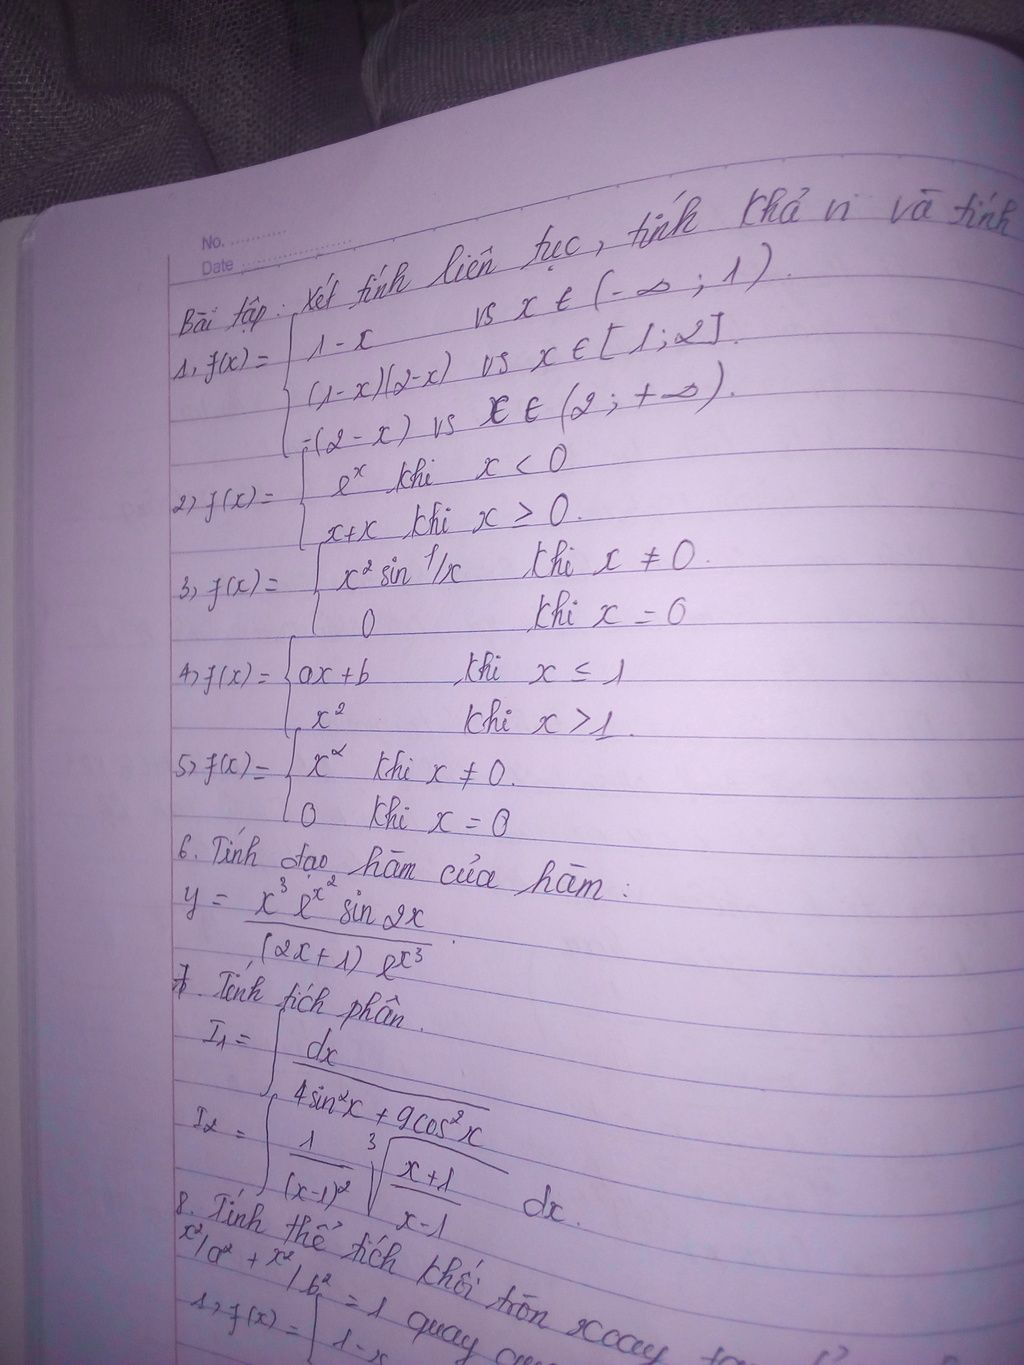 No. ..........
Date ....................
Bài tập: Xét tính liên tục, tính khả vi và tính
1, f(x) = { 1-x vs x ∈ (-∞; 1).
(1-x)(2-x) vs x ∈ [1; 2].
-(2-x) vs x ∈ (2; +∞).
2, f(x) = { e^x khi x < 0
x+x khi x > 0.
3, f(x) = { x² sin 1/x khi x ≠ 0.
0 khi x = 0
4, f(x) = { ax + b khi x ≤ 1
x² khi x > 1.
5, f(x) = { x^α khi x ≠ 0.
0 khi x = 0
6. Tính đạo hàm của hàm:
y = x³ e^x² sin 2x
(2x+1) e^x³ .
7. Tính tích phân.
I1 = ∫ dx
4sin²x + 9cos²x
I2 = ∫ 1/(x-1)² ∛(x+1)/(x-1) dx.
8. Tính thể tích khối tròn xoay
x²/a² + x²/b² = 1 quay
1, f(x) = { 1-x